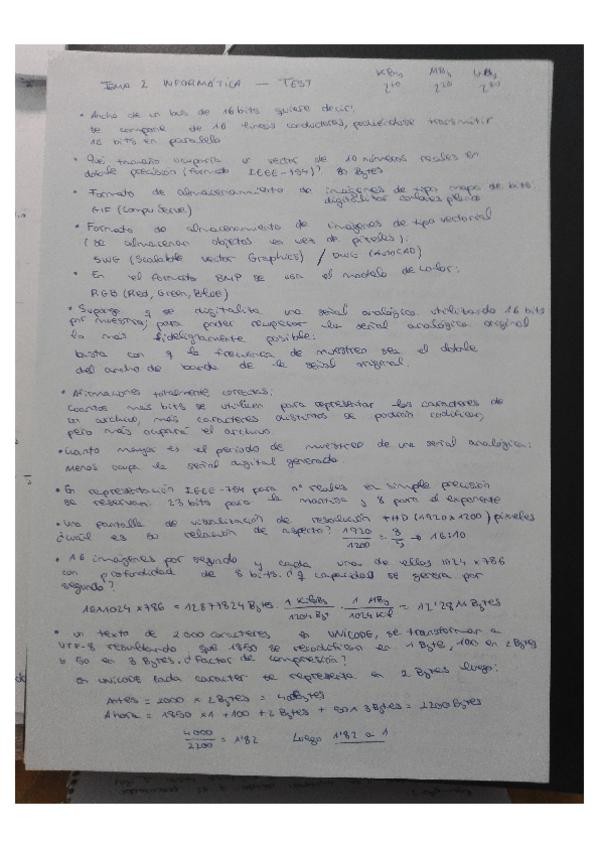 TEMA 2 INFORMÁTICA — TEST
KBy MBy GBy
2^10 2^20 2^30
• Ancho de un bus de 16 bits quiere decir:
se compone de 16 líneas conductoras, pudiéndose transmitir
16 bits en paralelo
• Qué tamaño ocuparía un vector de 10 números reales en
doble precisión (formato IEEE-754)? 80 Bytes
• Formato de almacenamiento de imágenes de tipo mapa de bits:
GIF (CompuServe)
• Formato de almacenamiento de imágenes de tipo vectorial
(se almacenan objetos en vez de píxeles):
SWG (Scalable Vector Graphics) / DWG (AutoCAD)
• En el formato BMP se usa el modelo de color:
RGB (Red, Green, Blue)
• Supongo q se digitaliza una señal analógica utilizando 16 bits
por muestra; para poder recuperar la señal analógica original
lo más fidedignamente posible:
basta con q la frecuencia de muestreo sea el doble
del ancho de banda de la señal original.
• Afirmaciones totalmente correctas:
Cuantos más bits se utilicen para representar los caracteres de
un archivo, más caracteres distintos se podrán codificar,
pero más ocupará el archivo.
• Cuanto mayor es el periodo de muestreo de una señal analógica:
menos ocupa la señal digital generada.
• En representación IEEE-754 para nº reales en simple precisión
se reservan: 23 bits para la mantisa y 8 para el exponente
• Una pantalla de visualización de resolución +HD (1920x1200) píxeles
¿cuál es su relación de aspecto? 1920/1200 = 8/5 → 16:10
• 16 imágenes por segundo y cada una de ellas 1024 x 786
con profundidad de 8 bits. ¿q capacidad se genera por
segundo?
16x1024x786 = 12877824 Bytes · 1 KiBy/1204 Byt · 1 MBy/1024 KiB = 12'28 MBytes
• Un texto de 2000 caracteres en UNICODE, se transforman a
UTF-8 resultando que 1850 se recodifican en 1 Byte, 100 en 2 Bytes
y 50 en 3 Bytes. ¿Factor de compresión?
En UNICODE cada caracter se representa en 2 Bytes luego:
Antes = 2000 x 2 Bytes =
Ahora = 1850 x 1 + 100 + 2 Bytes + 50 3 Bytes = 2200 Bytes
4000/2200 = 1'82 Luego 1'82 a 1